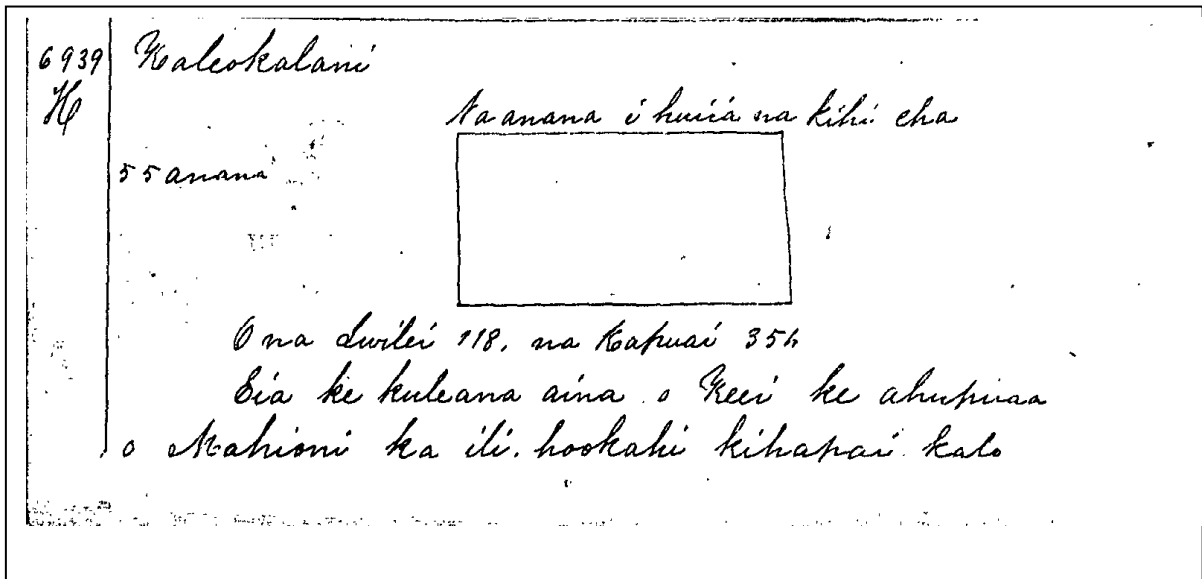 6939 Kaleokalani
H
Na anana i huiia na kihi eha
55 anana
O na Iwilei 118. na Kapuai 354
Eia ke kuleana aina o Keei ke ahupuaa
o Mahioni ka ili. hookahi kihapai kalo